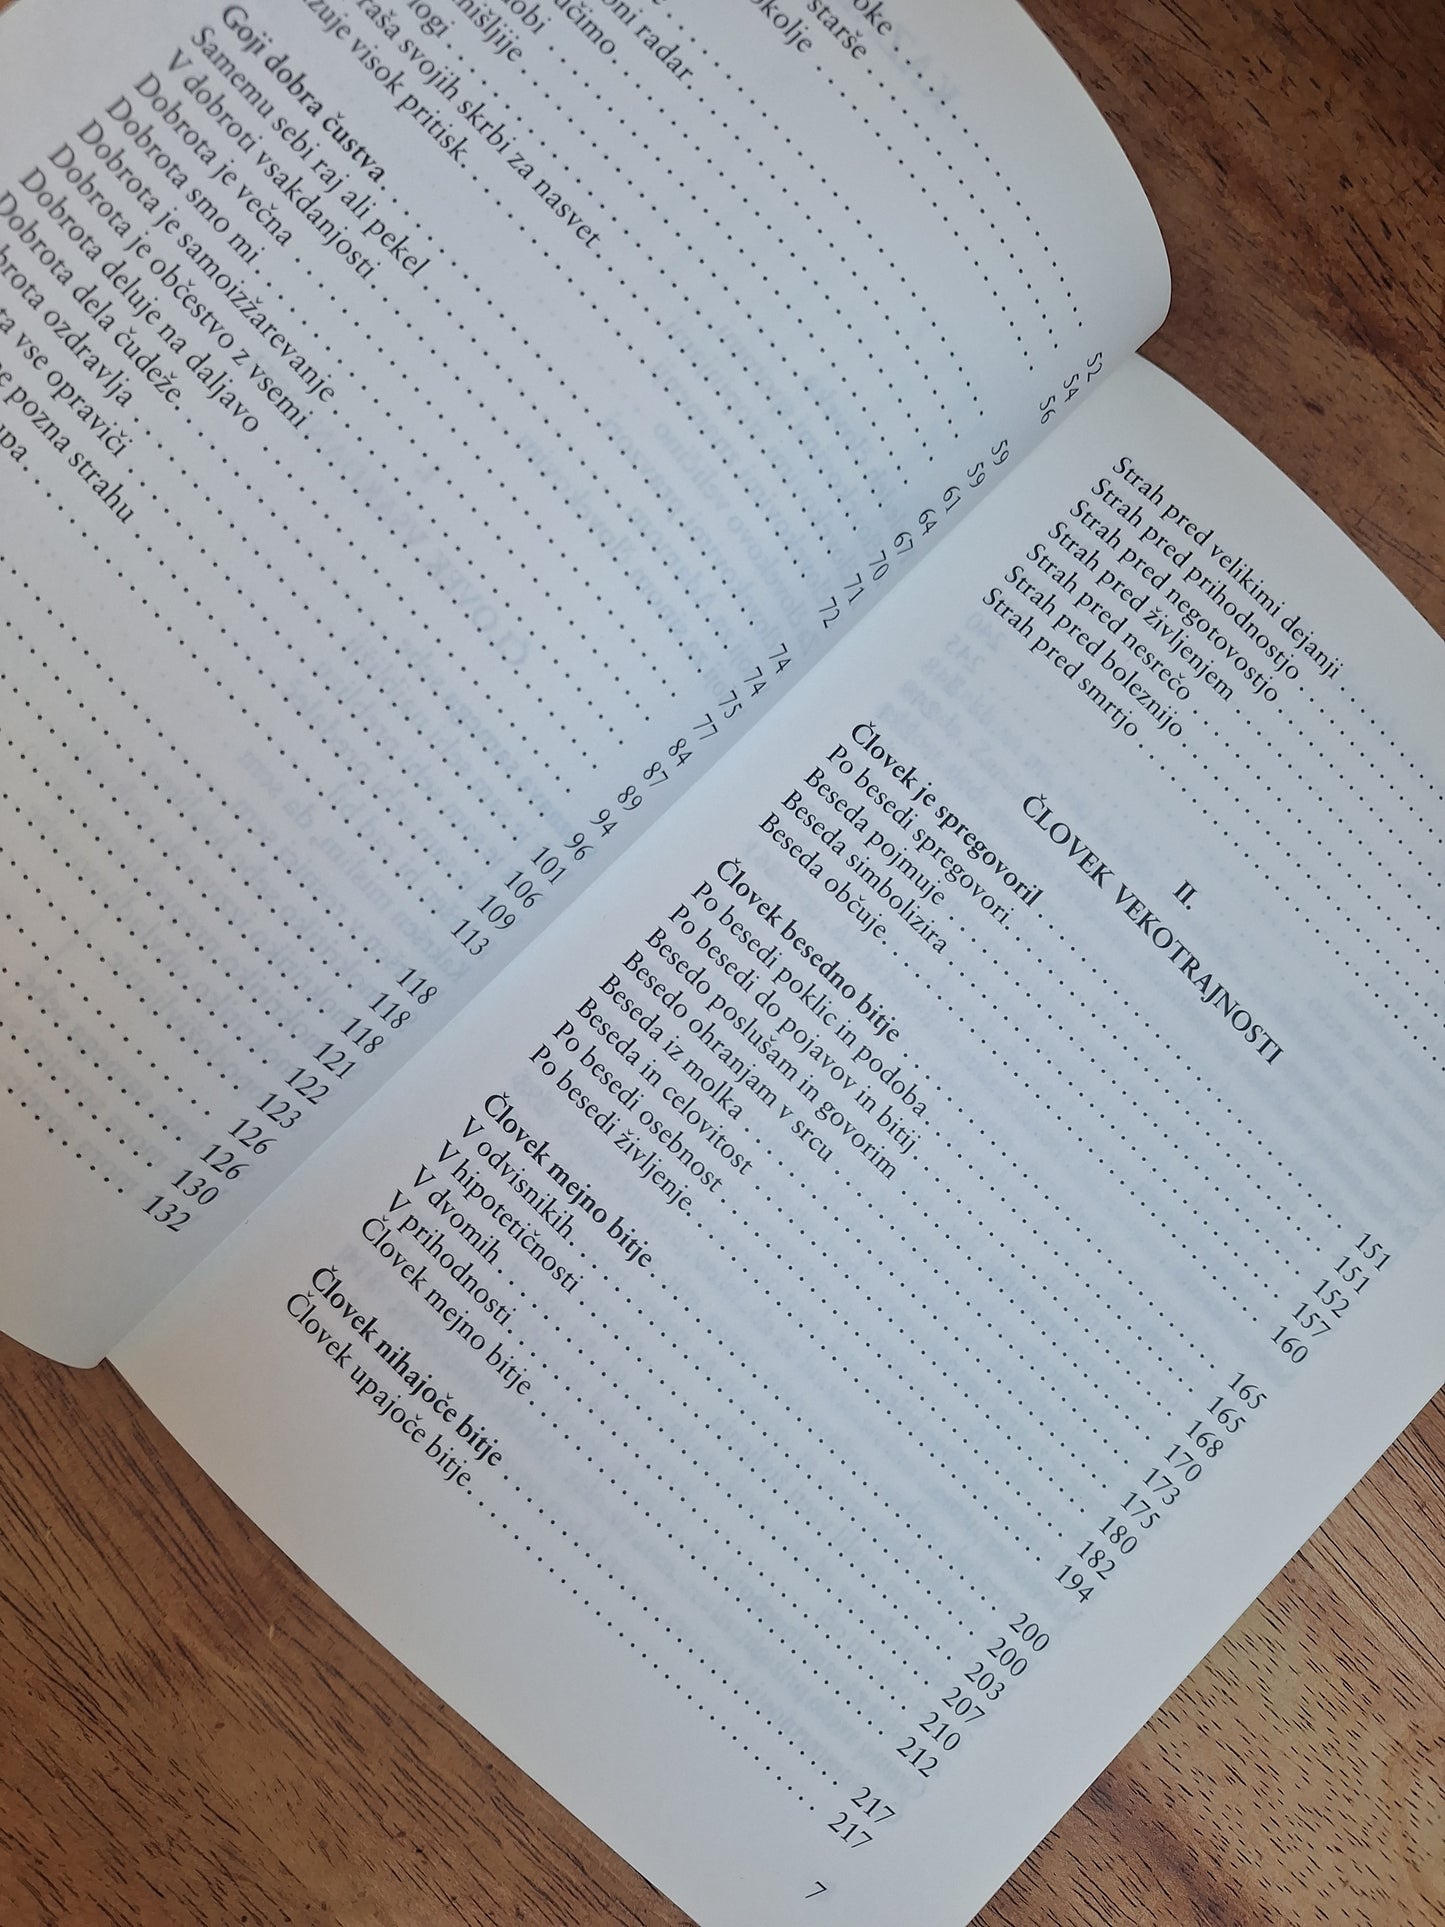 52
starše 54
okolje 56
59
radar 59
61
64
67
70
svojih skrbi za nasvet 71
visok pritisk 72
Goji dobra čustva 74
Samemu sebi raj ali pekel 74
V dobroti vsakdanjosti 75
Dobrota je večna 77
Dobrota smo mi 84
Dobrota je samoizžarevanje 87
Dobrota je občestvo z vsemi 89
Dobrota deluje na daljavo 94
Dobrota dela čudeže 96
ozdravlja 101
vse opraviči 106
pozna strahu 109
113
118
118
118
121
122
123
126
126
130
132
Strah pred velikimi dejanji
Strah pred prihodnostjo
Strah pred negotovostjo
Strah pred življenjem
Strah pred nesrečo
Strah pred boleznijo
Strah pred smrtjo
II.
ČLOVEK VEKOTRAJNOSTI
Človek je spregovoril 151
Po besedi spregovori 151
Beseda pojmuje 152
Beseda simbolizira 157
Beseda občuje 160
Človek besedno bitje 165
Po besedi poklic in podoba 165
Po besedi do pojavov in bitij 168
Besedo poslušam in govorim 170
Besedo ohranjam v srcu 173
Beseda iz molka 175
Beseda in celovitost 180
Po besedi osebnost 182
Po besedi življenje 194
Človek mejno bitje 200
V odvisnikih 200
V hipotetičnosti 203
V dvomih 207
V prihodnosti 210
Človek mejno bitje 212
Človek nihajoče bitje 217
Človek upajoče bitje 217
7